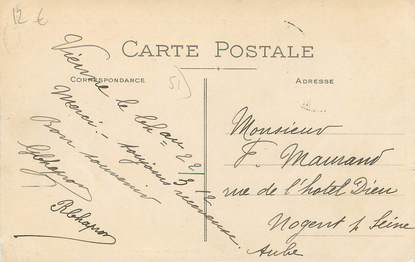 12 €
CARTE POSTALE
CORRESPONDANCE
ADRESSE
51
Vienne le
22/3 12
Merci. – toujours
Bon souvenir
Monsieur
F. Maurand
rue de l'hotel Dieu
Nogent s/ Seine
Aube